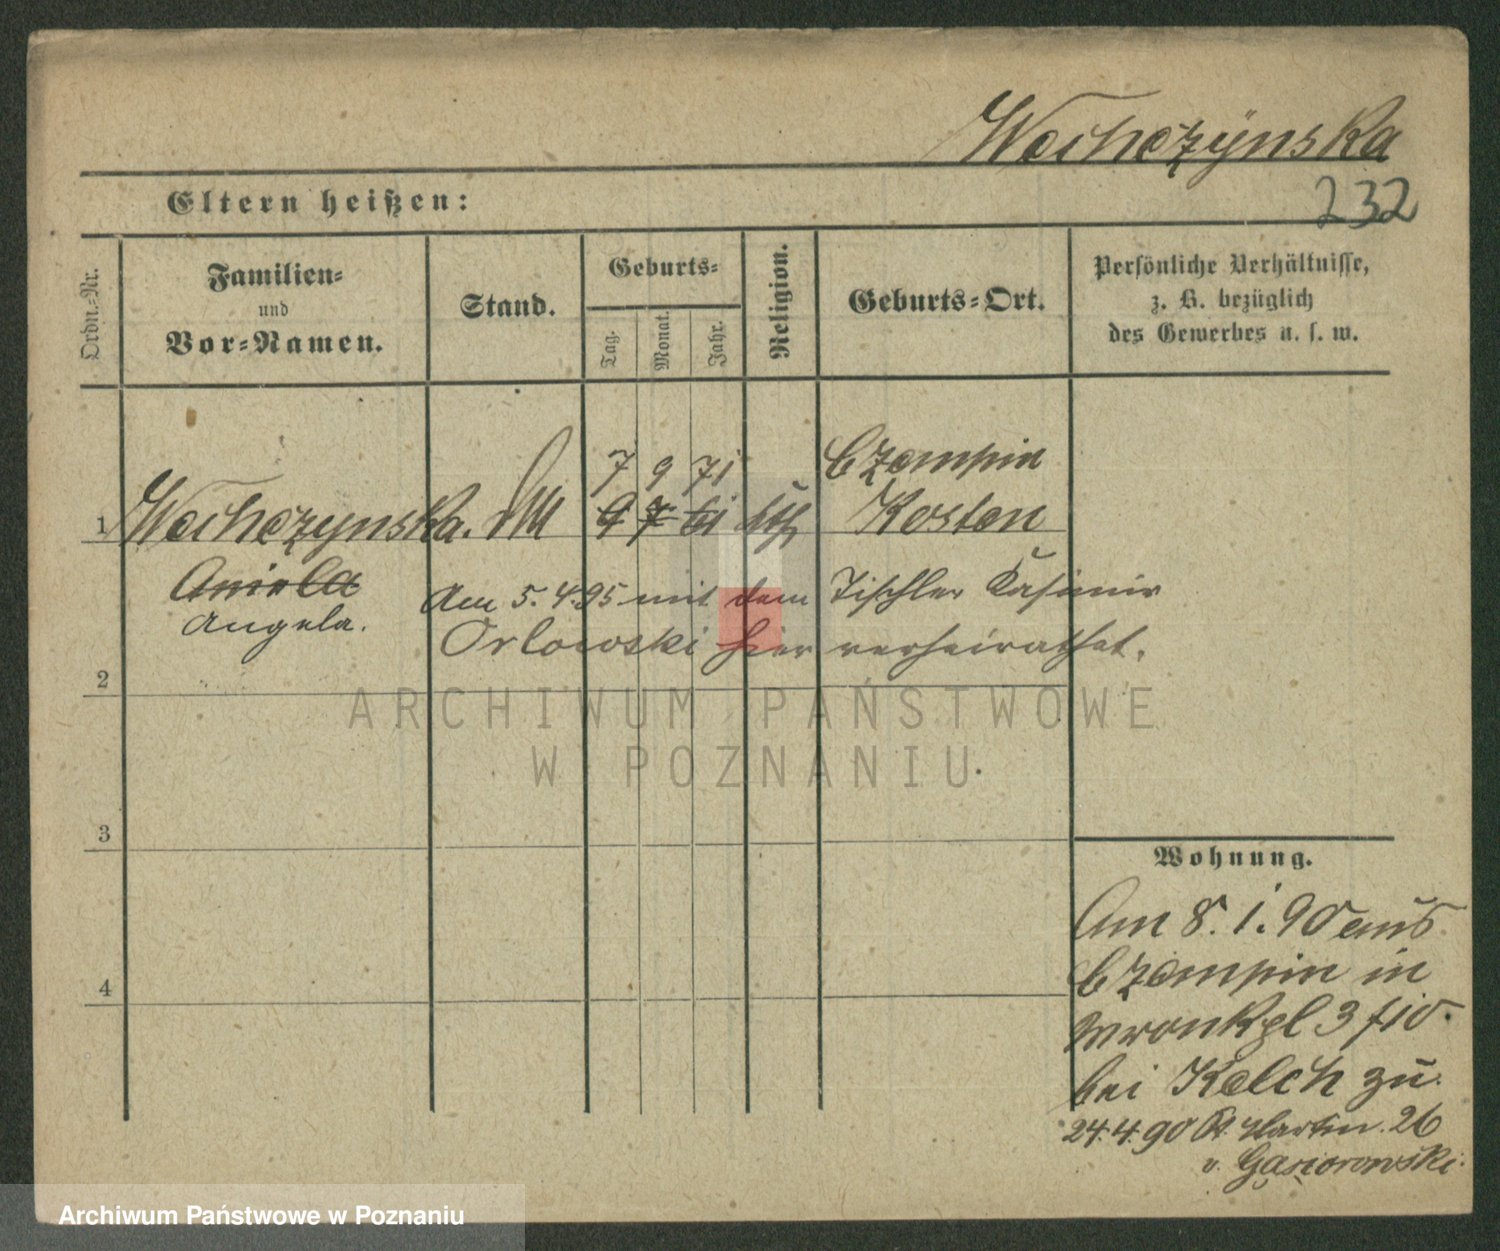 Wochczÿnska
232
Eltern heißen:
Ordn.-Nr.
Familien-
und
Vor-Namen.
Stand.
Geburts-
Tag.
Monat.
Jahr.
Religion.
Geburts-Ort.
Persönliche Verhältnisse,
z. B. bezüglich
des Gewerbes u. s. w.
7 9 71 Czempin
1 9 7 61 kth Kosten
Aniela
Angela.
Am 5.4.95 mit dem Tischler Kasimir
Orlowski hier verheirathet.
2
3
4
Wohnung.
Am 8.1.90 aus
Czempin in
Wronkpl 3
bei Kelch zu.
24.4.90 St. Martin. 26
v. Gąsiorowski.
ARCHIWUM PAŃSTWOWE
W POZNANIU
Archiwum Państwowe w Poznaniu